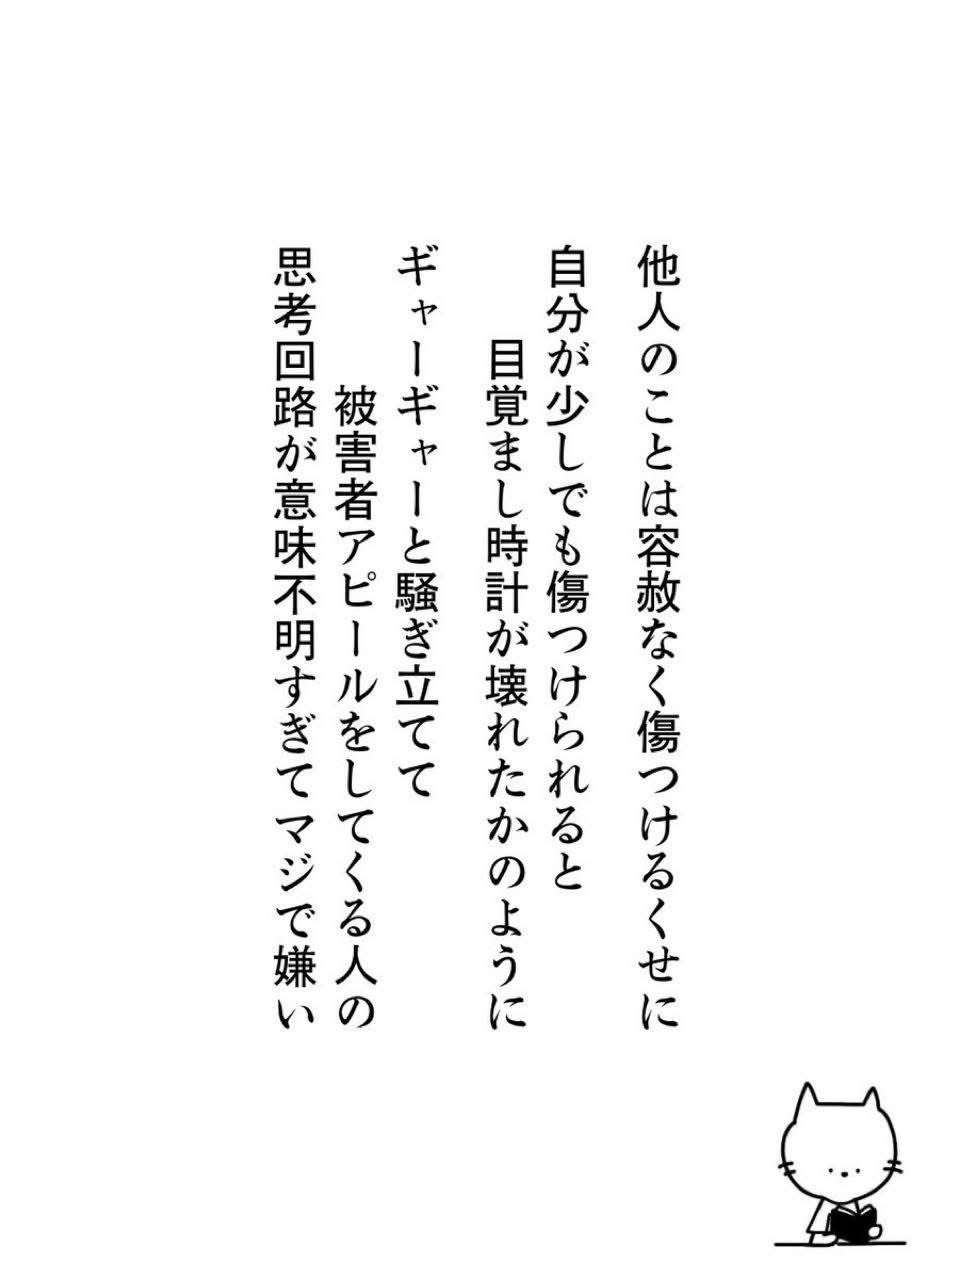 他人のことは容赦なく傷つけるくせに
自分が少しでも傷つけられると
目覚まし時計が壊れたかのように
ギャーギャーと騒ぎ立てて
被害者アピールをしてくる人の
思考回路が意味不明すぎてマジで嫌い